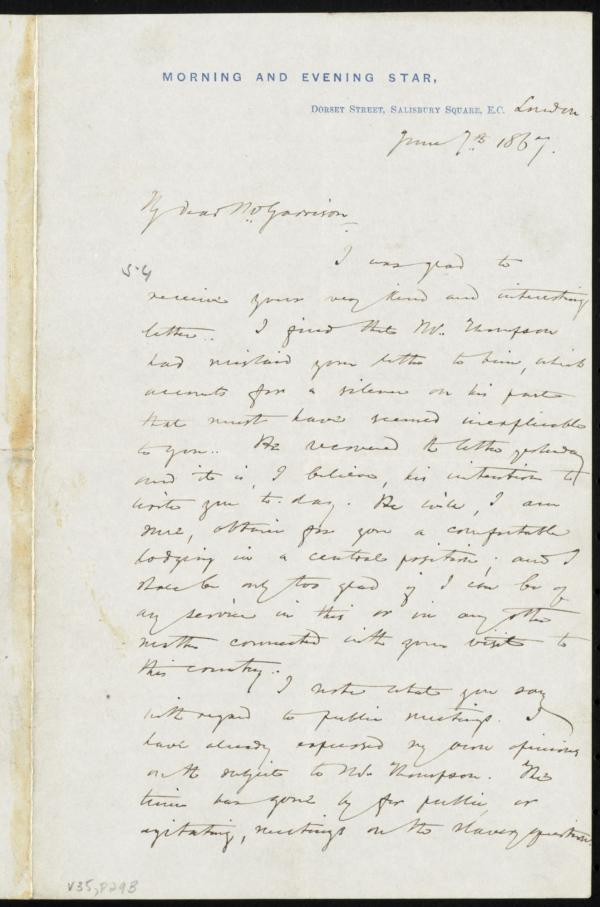 MORNING AND EVENING STAR,
DORSET STREET, SALISBURY SQUARE, E.C. London
June 7th 1867.
My dear Mr Garrison
I was glad to
receive your very kind and interesting
letter. I find that Mr. Thompson
had mislaid your letter to him, which
accounts for a silence on his part
that must have seemed inexplicable
to you. He recovered the letter yesterday
and it is, I believe, his intention to
write you to-day. He will, I am
sure, obtain for you a comfortable
lodging in a central position; and I
shall be only too glad if I can be of
any service in this or in any other
matter connected with your visit to
this country.
I note what you say
with regard to public meetings. I
have already expressed my own opinions
on the subject to Mr. Thompson. The
time has gone by for public, or
agitating, meetings on the slavery question.
V35, P29B